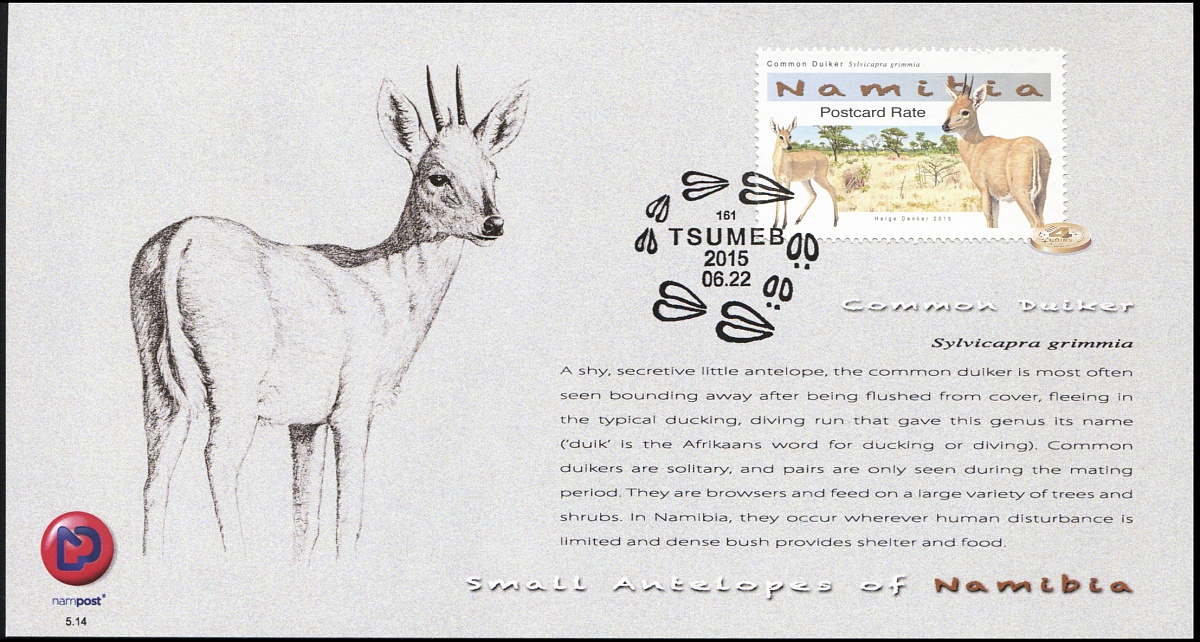 Common Duiker Sylvicapra grimmia
Namibia
Postcard Rate
Helge Denker 2015
161
TSUMEB
2015
06.22
Common Duiker
Sylvicapra grimmia
A shy, secretive little antelope, the common duiker is most often
seen bounding away after being flushed from cover, fleeing in
the typical ducking, diving run that gave this genus its name
('duik' is the Afrikaans word for ducking or diving). Common
duikers are solitary, and pairs are only seen during the mating
period. They are browsers and feed on a large variety of trees and
shrubs. In Namibia, they occur wherever human disturbance is
limited and dense bush provides shelter and food.
Small Antelopes of Namibia
nampost
5.14